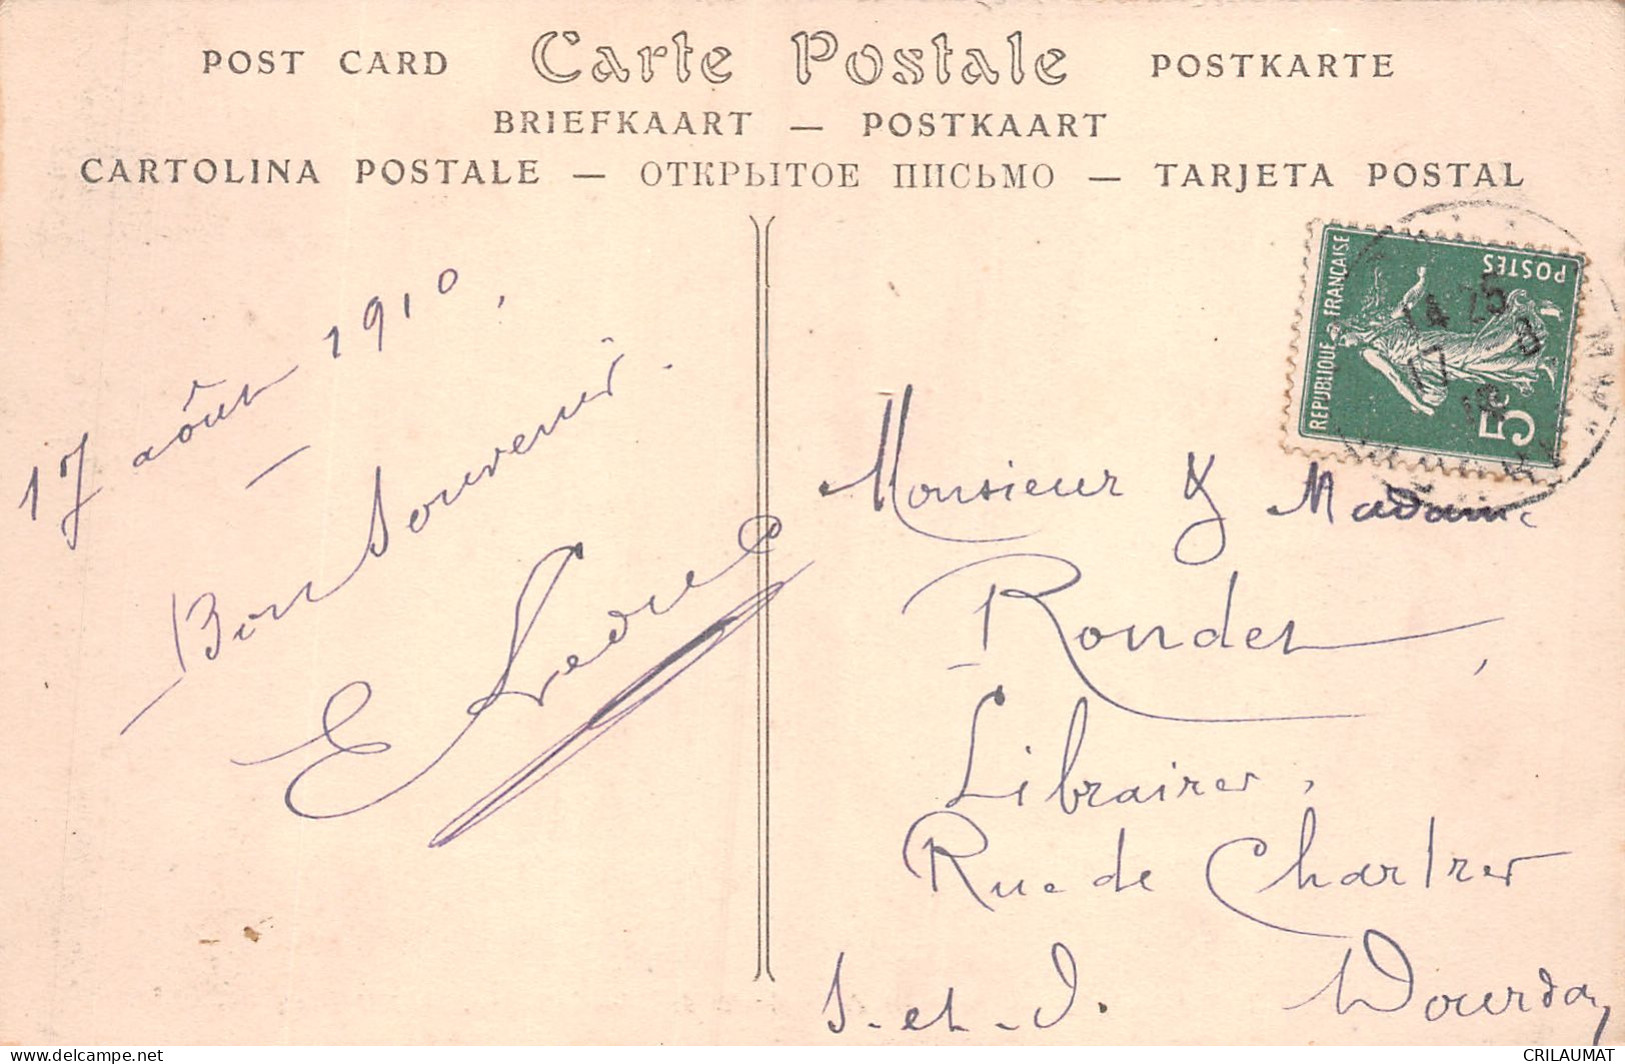 POST CARD Carte Postale POSTKARTE
BRIEFKAART — POSTKAART
CARTOLINA POSTALE — ОТКРЫТОЕ ПИСЬМО — TARJETA POSTAL
17 août 1910,
Bon Souvenir.
E Ledru
REPUBLIQUE FRANÇAISE
POSTES
5c
14 25
17 - 8
Monsieur & Madame
Rondet,
Libraires,
Rue de Chartres
S.-et-O. Dourdan
CRILAUMAT